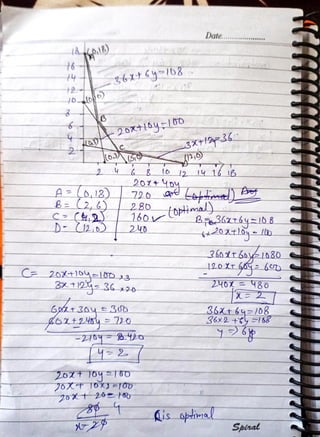 Date
18 (0,18)
16
14 36x+6y=108
12
10 (0,10)
8
6 B
4 20x+10y=100
2 C 3x+12y=36
(0,3) (5,0) (12,0)
2 4 6 8 10 12 14 16 18
20x+40y
A = (0,18) 720
B = (2,6) 280 (optimal)
C = (4,2) 160 ✓
D - (12,0) 240
B = 36x+6y=108
20x+10y=100
360x+60y=1080
120x+60y=600
-
240x = 480
x = 2
36x+6y=108
36x2+6y=108
y => 6
C= 20x+10y=100 x3
3x+12y=36 x20
60x+30y=300
60x+240y=720
-210y = 420
y=2
20x+10y=100
20x+10x2=100
20x+20=100
80 4
x=20
C is optimal
Spiral